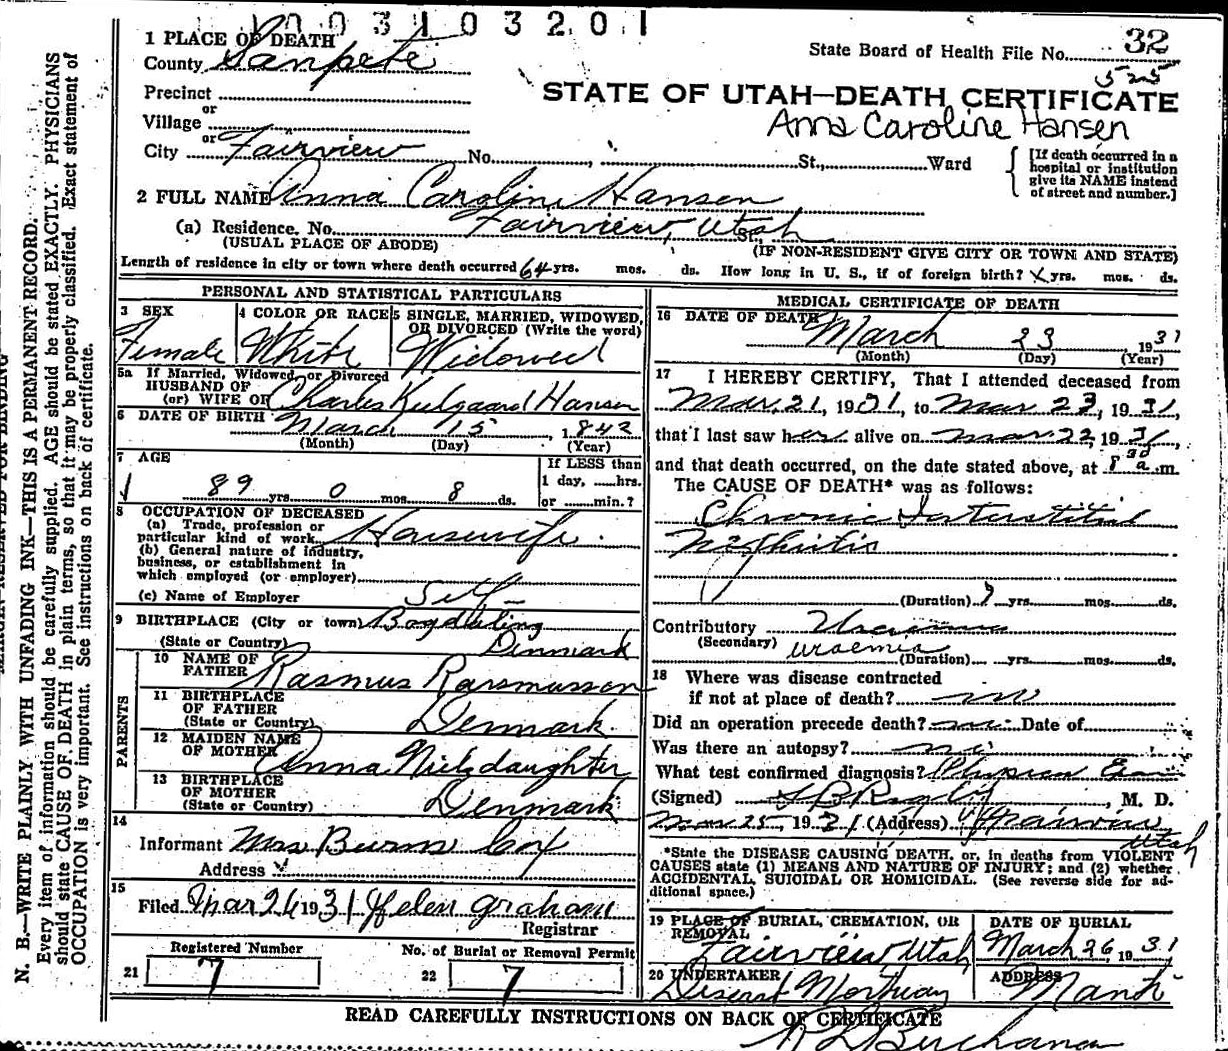 1 0 0 3 1 0 3 2 0 1
1 PLACE OF DEATH
State Board of Health File No. 32
County Sanpete
525
Precinct
STATE OF UTAH—DEATH CERTIFICATE
or
Village
Anna Caroline Hansen
or
City Fairview No. St., Ward
[If death occurred in a hospital or institution give its NAME instead of street and number.]
2 FULL NAME Anna Caroline Hansen
(a) Residence. No. Fairview, Utah St.,
(USUAL PLACE OF ABODE) (IF NON-RESIDENT GIVE CITY OR TOWN AND STATE)
Length of residence in city or town where death occurred 64 yrs. mos. ds. How long in U. S., if of foreign birth? x yrs. mos. ds.
PERSONAL AND STATISTICAL PARTICULARS
3 SEX 4 COLOR OR RACE 5 SINGLE, MARRIED, WIDOWED, OR DIVORCED (Write the word)
Female White Widowed
5a If Married, Widowed, or Divorced
HUSBAND OF
(or) WIFE OF Charles Keilgaard Hansen
6 DATE OF BIRTH March 15, 1842
(Month) (Day) (Year)
7 AGE If LESS than
1 day, hrs.
89 yrs. 0 mos. 8 ds. or min.?
8 OCCUPATION OF DECEASED
(a) Trade, profession or
particular kind of work Housewife
(b) General nature of industry,
business, or establishment in
which employed (or employer)
(c) Name of Employer Self
9 BIRTHPLACE (City or town)
(State or Country) Denmark
PARENTS
10 NAME OF
FATHER Rasmus Rasmussen
11 BIRTHPLACE
OF FATHER
(State or Country) Denmark
12 MAIDEN NAME
OF MOTHER Anna Nielsdaughter
13 BIRTHPLACE
OF MOTHER
(State or Country) Denmark
14
Informant Mrs Burns Cox
Address
15
Filed Mar 26 1931 Helen Graham
Registrar
Registered Number No. of Burial or Removal Permit
21 7 22 7
MEDICAL CERTIFICATE OF DEATH
16 DATE OF DEATH
March 23 1931
(Month) (Day) (Year)
17 I HEREBY CERTIFY, That I attended deceased from
Mar. 21, 1931, to Mar 23, 1931,
that I last saw her alive on Mar 22, 1931,
and that death occurred, on the date stated above, at 8 30 a.m
The CAUSE OF DEATH* was as follows:
Chronic Interstitial
Nephritis
(Duration) ? yrs. mos. ds.
Contributory Uraemia
(Secondary) uraemia
(Duration) yrs. mos. ds.
18 Where was disease contracted
if not at place of death? no
Did an operation precede death? no Date of
Was there an autopsy? no
What test confirmed diagnosis? Physical Exam
(Signed) M. D.
Mar 25, 1931 (Address) Fairview
Utah
*State the DISEASE CAUSING DEATH, or, in deaths from VIOLENT
CAUSES state (1) MEANS AND NATURE OF INJURY; and (2) whether
ACCIDENTAL, SUICIDAL OR HOMICIDAL. (See reverse side for ad-
ditional space.)
19 PLACE OF BURIAL, CREMATION, OR REMOVAL DATE OF BURIAL
Fairview Utah March 26, 1931
20 UNDERTAKER ADDRESS
Deseret Mortuary Manti
READ CAREFULLY INSTRUCTIONS ON BACK OF CERTIFICATE
N. B.—WRITE PLAINLY WITH UNFADING INK—THIS IS A PERMANENT RECORD.
Every item of information should be carefully supplied. AGE should be stated EXACTLY. PHYSICIANS
should state CAUSE OF DEATH in plain terms, so that it may be properly classified. Exact statement of
OCCUPATION is very important. See instructions on back of certificate.